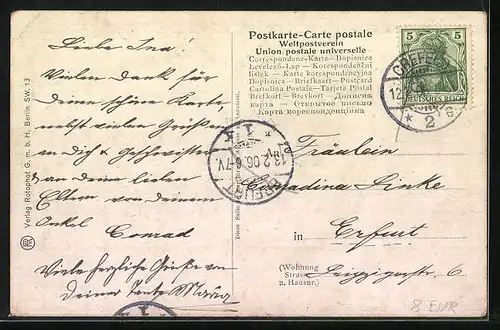 Liebe Ina!
Vielen Dank für
deine schöne Karte,
nebst vielen Grüßen
an dich & Geschwister
& an deine lieben
Eltern von deinem
Onkel
Conrad
Viele herzliche Grüße von
deiner Tante Maria
Verlag Rotophot G. m. b. H., Berlin SW. 13
Postkarte-Carte postale
Weltpostverein
Union postale universelle
Correspondenz-Karte—Dopisnice
Levelező-Lap — Korrespondenční
lístek — Karte korespondencyjna
Dopisnica — Briefkaart — Postcard
Cartolina Postale — Tarjeta Postal
Brefkort — Brevkort — Дописна
карта — Открытое письмо
Карта кореспонденційна
5 5
DEUTSCHES REICH
CREFELD
12
* 2 e
ERFURT
13.2.06. 6-7V.
* 1 k
Fräulein
Linke
in Erfurt
(Wohnung
Strasse
u. Hausnr.)
Leipzigerstr. 6
8 EUR